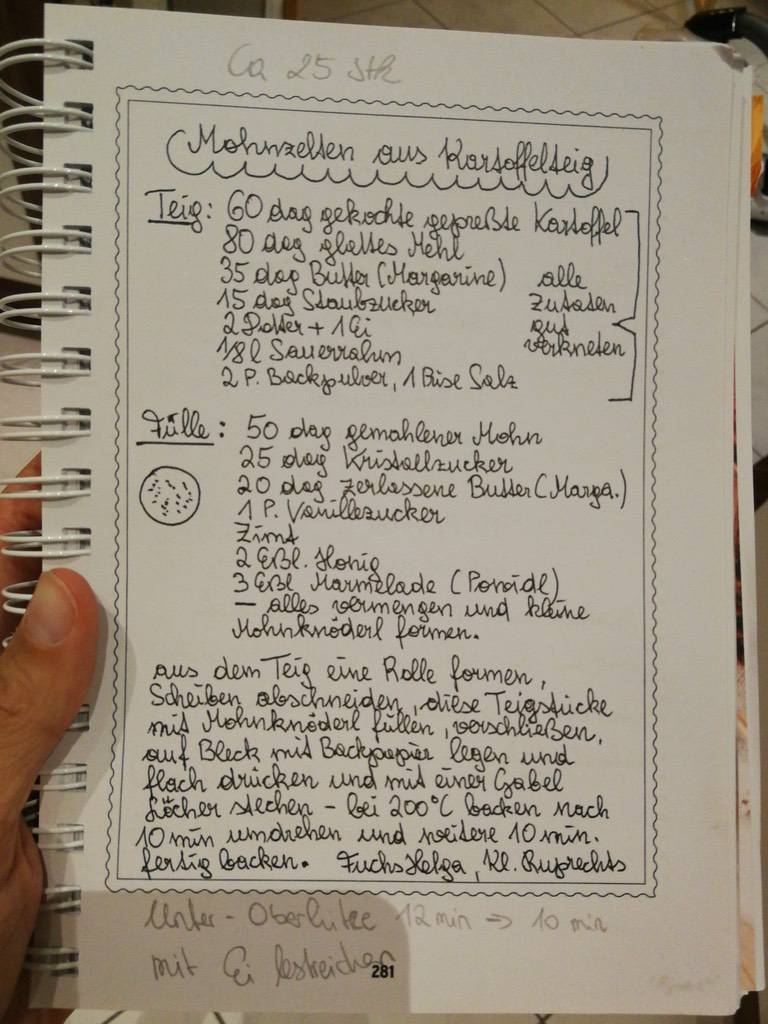 Ca 25 Stk
Mohnzelten aus Kartoffelteig
Teig: 60 dag gekochte gepreßte Kartoffel
80 dag glattes Mehl
35 dag Butter (Margarine)
15 dag Staubzucker
2 Dotter + 1 Ei
1/8 l Sauerrahm
2 P. Backpulver, 1 Brise Salz
alle
Zutaten
gut
verkneten
Fülle: 50 dag gemahlener Mohn
25 dag Kristallzucker
20 dag zerlassene Butter (Marga.)
1 P. Vanillezucker
Zimt
2 Eßl. Honig
3 Eßl Marmelade (Powidl)
— alles vermengen und kleine
Mohnknöderl formen.
aus dem Teig eine Rolle formen,
Scheiben abschneiden, diese Teigstücke
mit Mohnknöderl füllen, verschließen,
auf Blech mit Backpapier legen und
flach drücken und mit einer Gabel
Löcher stechen - bei 200°C backen nach
10 min umdrehen und weitere 10 min.
fertig backen. Fuchs Helga, Kl. Ruprechts
Unter - Oberhitze 12 min => 10 min
mit Ei bestreichen
281